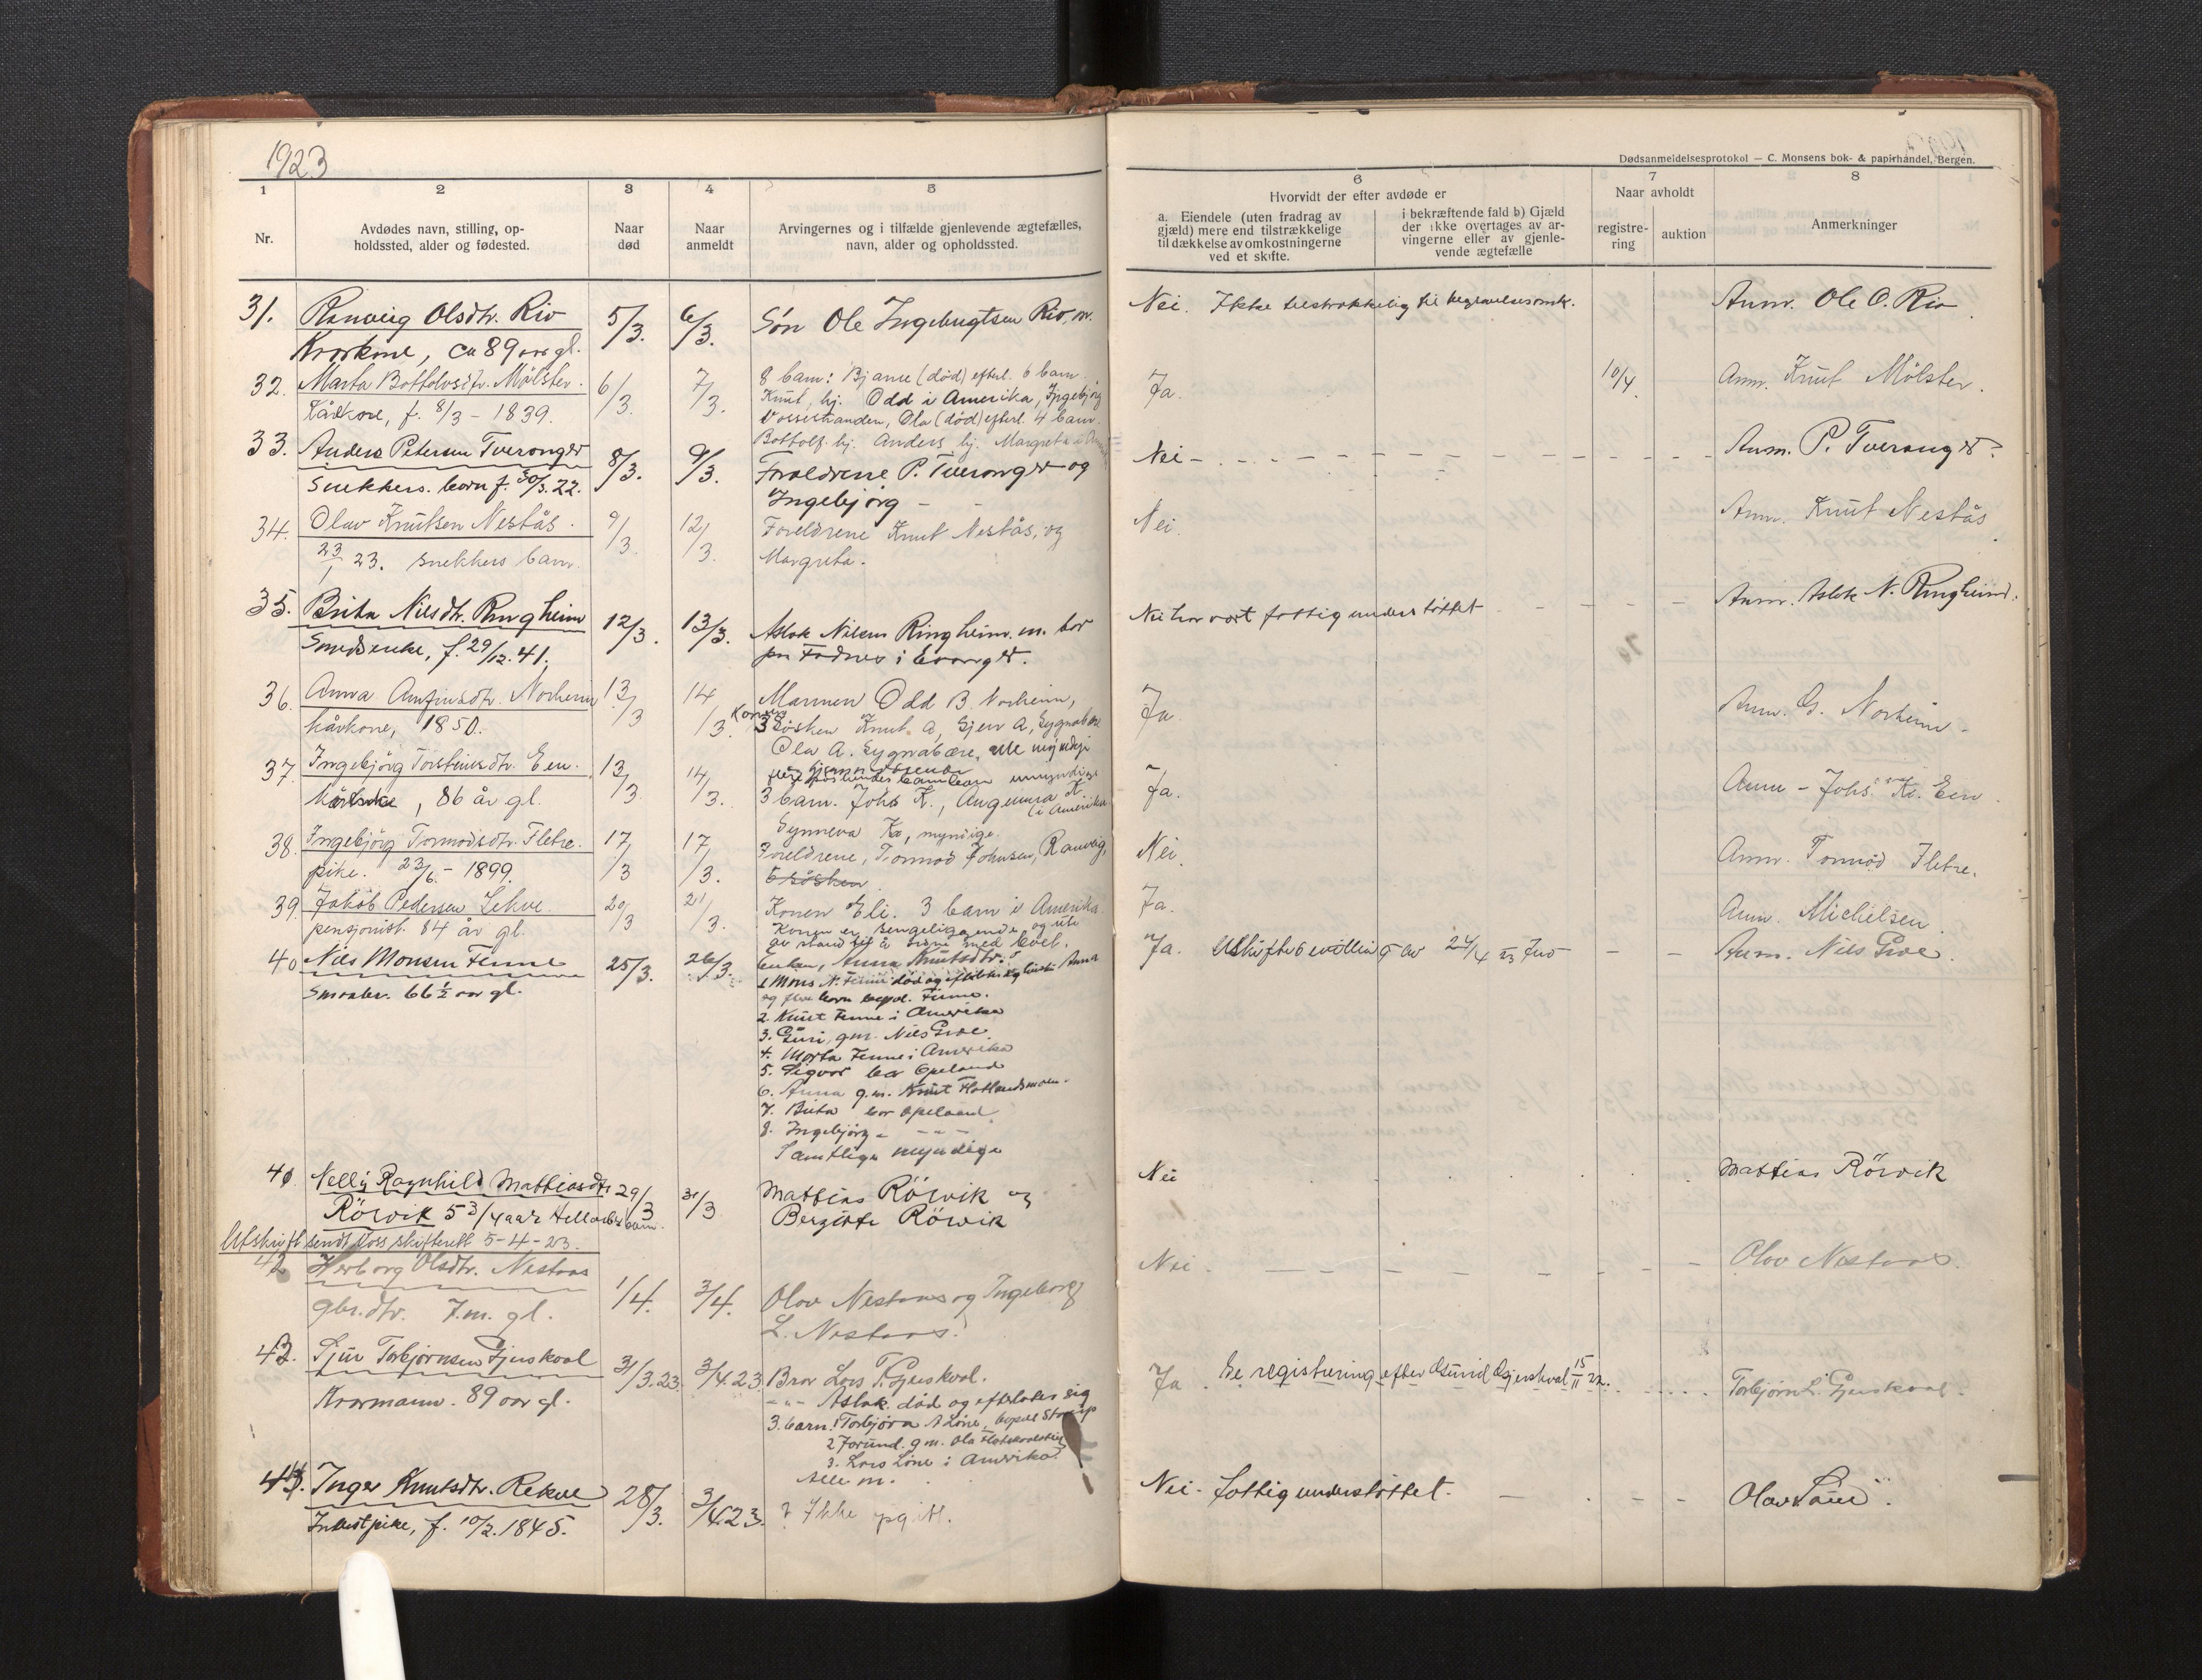 1923
Dødsanmeldelsesprotokol — C. Monsens bok- & papirhandel, Bergen.
1 2 3 4 5 6 7 8
Nr.
Avdødes navn, stilling, op-
holdssted, alder og fødested.
Naar
død
Naar
anmeldt
Arvingernes og i tilfælde gjenlevende ægtefælles,
navn, alder og opholdssted.
Hvorvidt der efter avdøde er
a. Eiendele (uten fradrag av
gjæld) mere end tilstrækkelige
til dækkelse av omkostningerne
ved et skifte.
i bekræftende fald b) Gjæld
der ikke overtages av ar-
vingerne eller av gjenle-
vende ægtefælle
Naar avholdt
registre-
ring
auktion
Anmerkninger
31. Ranveig Olsdtr. Riv 5/3. 6/3. Søn Ole Ingebrigtsen Riv, m. Nei. Ikke tilstrækkelig til begravelsesomk. Anm. Ole O. Riv
Kårkone, ca 89 aar gl.
32. Marta Bottolvsdtr. Mölster. 6/3. 7/3. 8 barn: Bjarne (död) efterl. 6 barn. Ja. 10/4. Anm. Knut Mölster.
Kårkone, f. 8/3 - 1839. Knut, hj. Odd i Amerika, Ingebjörg
Vossestranden, Ola (död) efterl. 4 barn.
Bottolf hj. Anders hj. Margreta i
33. Anders Petersen Tveranger 8/3. 9/3. Forældrene P. Tveranger og Nei - Anm. P. Tveranger.
Snekkers. barn f. 30/3. 22. Ingebjørg -
34. Olav Knutsen Nestås. 9/3 12/3. Foreldrene Knut Nestås, og Nei. Anm. Knut Nestås
23/1 23. snekkers barn. Margreta.
35. Brita Nilsdtr. Ringheim 12/3. 13/3. Aslak Nilsen Ringheim. m. bor Nei har vært fattigunderstøttet Anm. Aslak N. Ringheim.
Smedsenke, f. 29/12. 41. paa Fadnes i Evanger.
36. Anna Amfinsdtr. Norheim 13/3 14/3. Mannen Odd B. Norheim, Ja. Anm. G. Norheim
kårkone, 1850. Konens
3 Sösken Knut A, Gjen A, Gygnabære
Ola A. Gygnabære, alle myndige
37. Ingebjörg Torsteinsdtr. Een. 13/3 14/3. Ja. Anm - Johs. K. Een.
, 86 år gl. 3 barn. Johs K.,
(i Amerika
Synneva K, myndige.
38. Ingebjörg Tormodsdtr. Fletre. 17/3 17/3. Foreldrene, Tormod Johnsen, Ranveig, Nei. Anm. Tormod Fletre.
pike. 23/6 - 1899. 6 søsken
39. Jakob Pedersen Lekve. 20/3 21/3. Konen Eli. 3 barn i Amerika. Ja. Anm. Michelsen.
pensjonist. 84 år gl. Konen er sengeliggende og ute
av stand til å signe med bost.
40 Nils Monsen Finne 25/3. 26/3. Enken, Anna Knutsdtr. Ja. Uskiftebevilling av 24/4 23 Anm. Nils Gjøe.
66½ aar gl. 1 Mons N. Finne død og efterlater sig hustru Anna
og flere barn bopæl. Finne.
2. Knut Finne i Amerika
3. Guri, gm. Nils
4. Marta Finne i Amerika
5. Sigvor bor Opeland
6. Anna g.m. Knut Flatlandsmoen.
7. Brita bor Opeland
8. Ingebjörg - -"-
Samtlige myndige
41. Nelly Ragnhild Mattiasdtr. 29/3 31/3 Mattias Rörvik og Nei Mattias Rörvik
Rörvik 5 3/4 aar barn. Bergitte Rörvik
Utskrift sendt Voss skifterett 5-4-23.
42 Herborg Olsdtr. Nestaas 1/4. 3/4. Olav Nestaas og Ingeborg Nei. Olav Nestaas.
gbr.dtr. 7 m. gl. L. Nestaas.
43. Sjur Torbjørnsen Gjerskvål 31/3. 23. 3/4. 23. Bror Lars T. Gjerskvål. Ja. Se registrering efter 15/11 22. Torbjørn L. Gjerskvål.
Kårmann. 89 aar gl. -"- Aslak død og efterlater sig
3. barn: 1 Torbjørn A Løne, bopæl
2 Jorund. gm. Ola
3. Lars Løne i Amerika
Alle m.
Inger Knutsdtr. Rekve 28/3. 3/4 23. ? Ikke opgitt. Nei - fattigunderstøttet. Olav
f. 10/2. 1845.